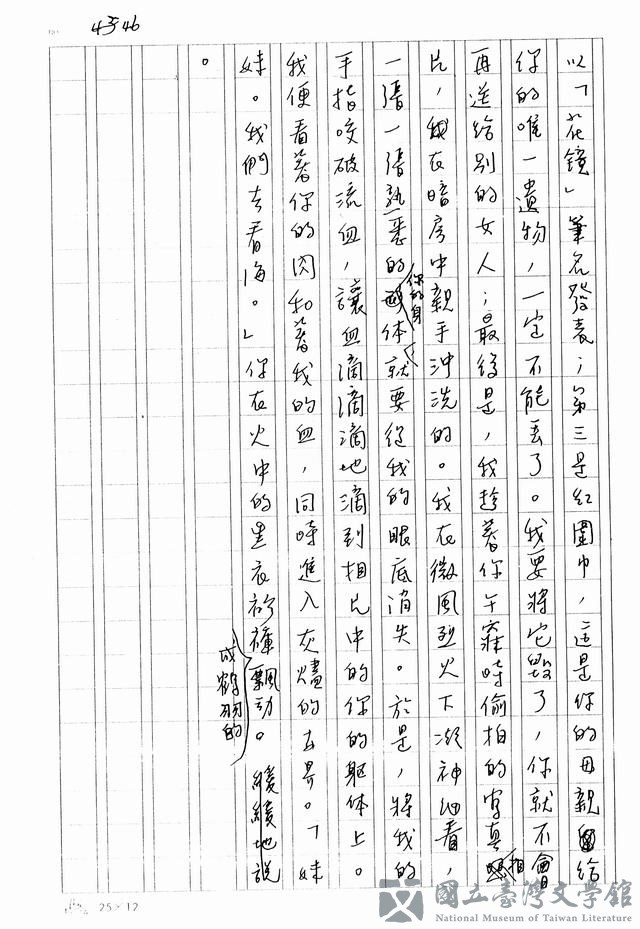 4于46
以「花鏡」筆名發表；第三是紅圍巾，這是你的母親給
你的唯一遺物，一定不能丟了。我要將它毀了，你就不會
再送給別的女人；最後是，我趁著你午寐時偷拍的寫真相
片，我在暗房中親手沖洗的。我在微風烈火下凝神地看，
一張一張熟悉的你的身体就要從我的眼底消失。於是，將我的
手指咬破流血，讓血滴滴滴地滴到相片中的你的軀体上。
我便看著你的肉和著我的血，同時進入灰燼的五界。「妹
妹。我們去看海。」你在火中的黑衣衫褲飄動成鶴羽的。緩緩地說
。
25×12
國立臺灣文學館
National Museum of Taiwan Literature